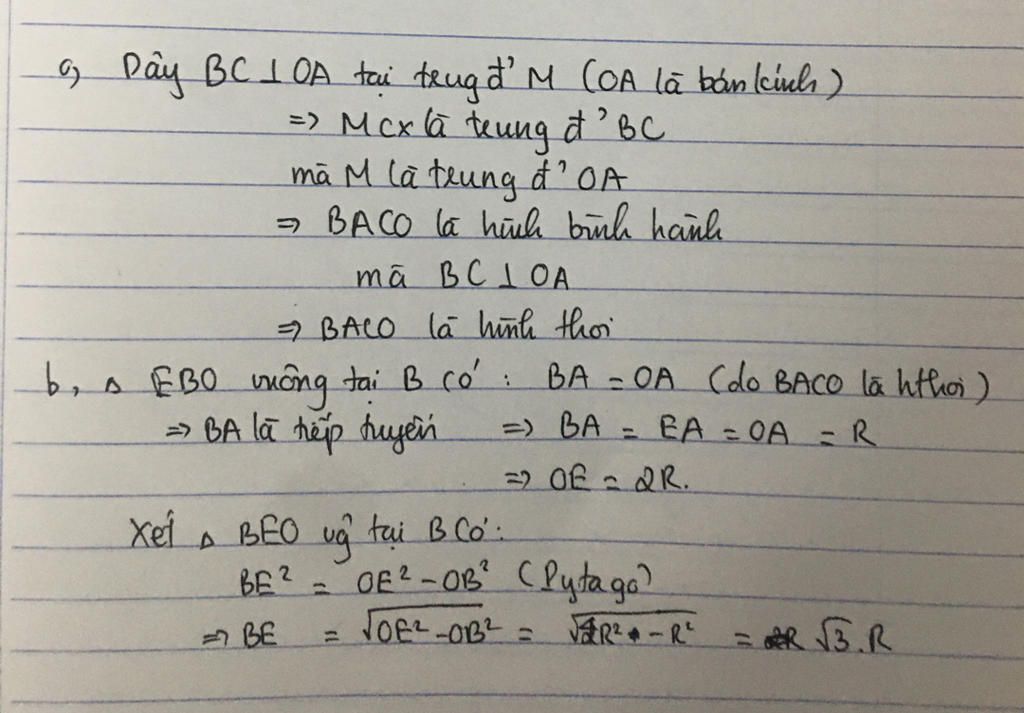 a, Dây BC ⊥ OA tại trug đ' M (OA là bán kính)
=> M cx là trung đ' BC
mà M là trung đ' OA
=> BACO là hình bình hành
mà BC ⊥ OA
=> BACO là hình thoi
b, Δ EBO vuông tại B có : BA = OA (do BACO là hthoi)
=> BA là tiếp tuyến => BA = EA = OA = R
=> OE = 2R.
Xét Δ BEO vg tại B có:
BE² = OE² - OB² (Pytago)
=> BE = √OE² - OB² = √4R² - R² = √3.R